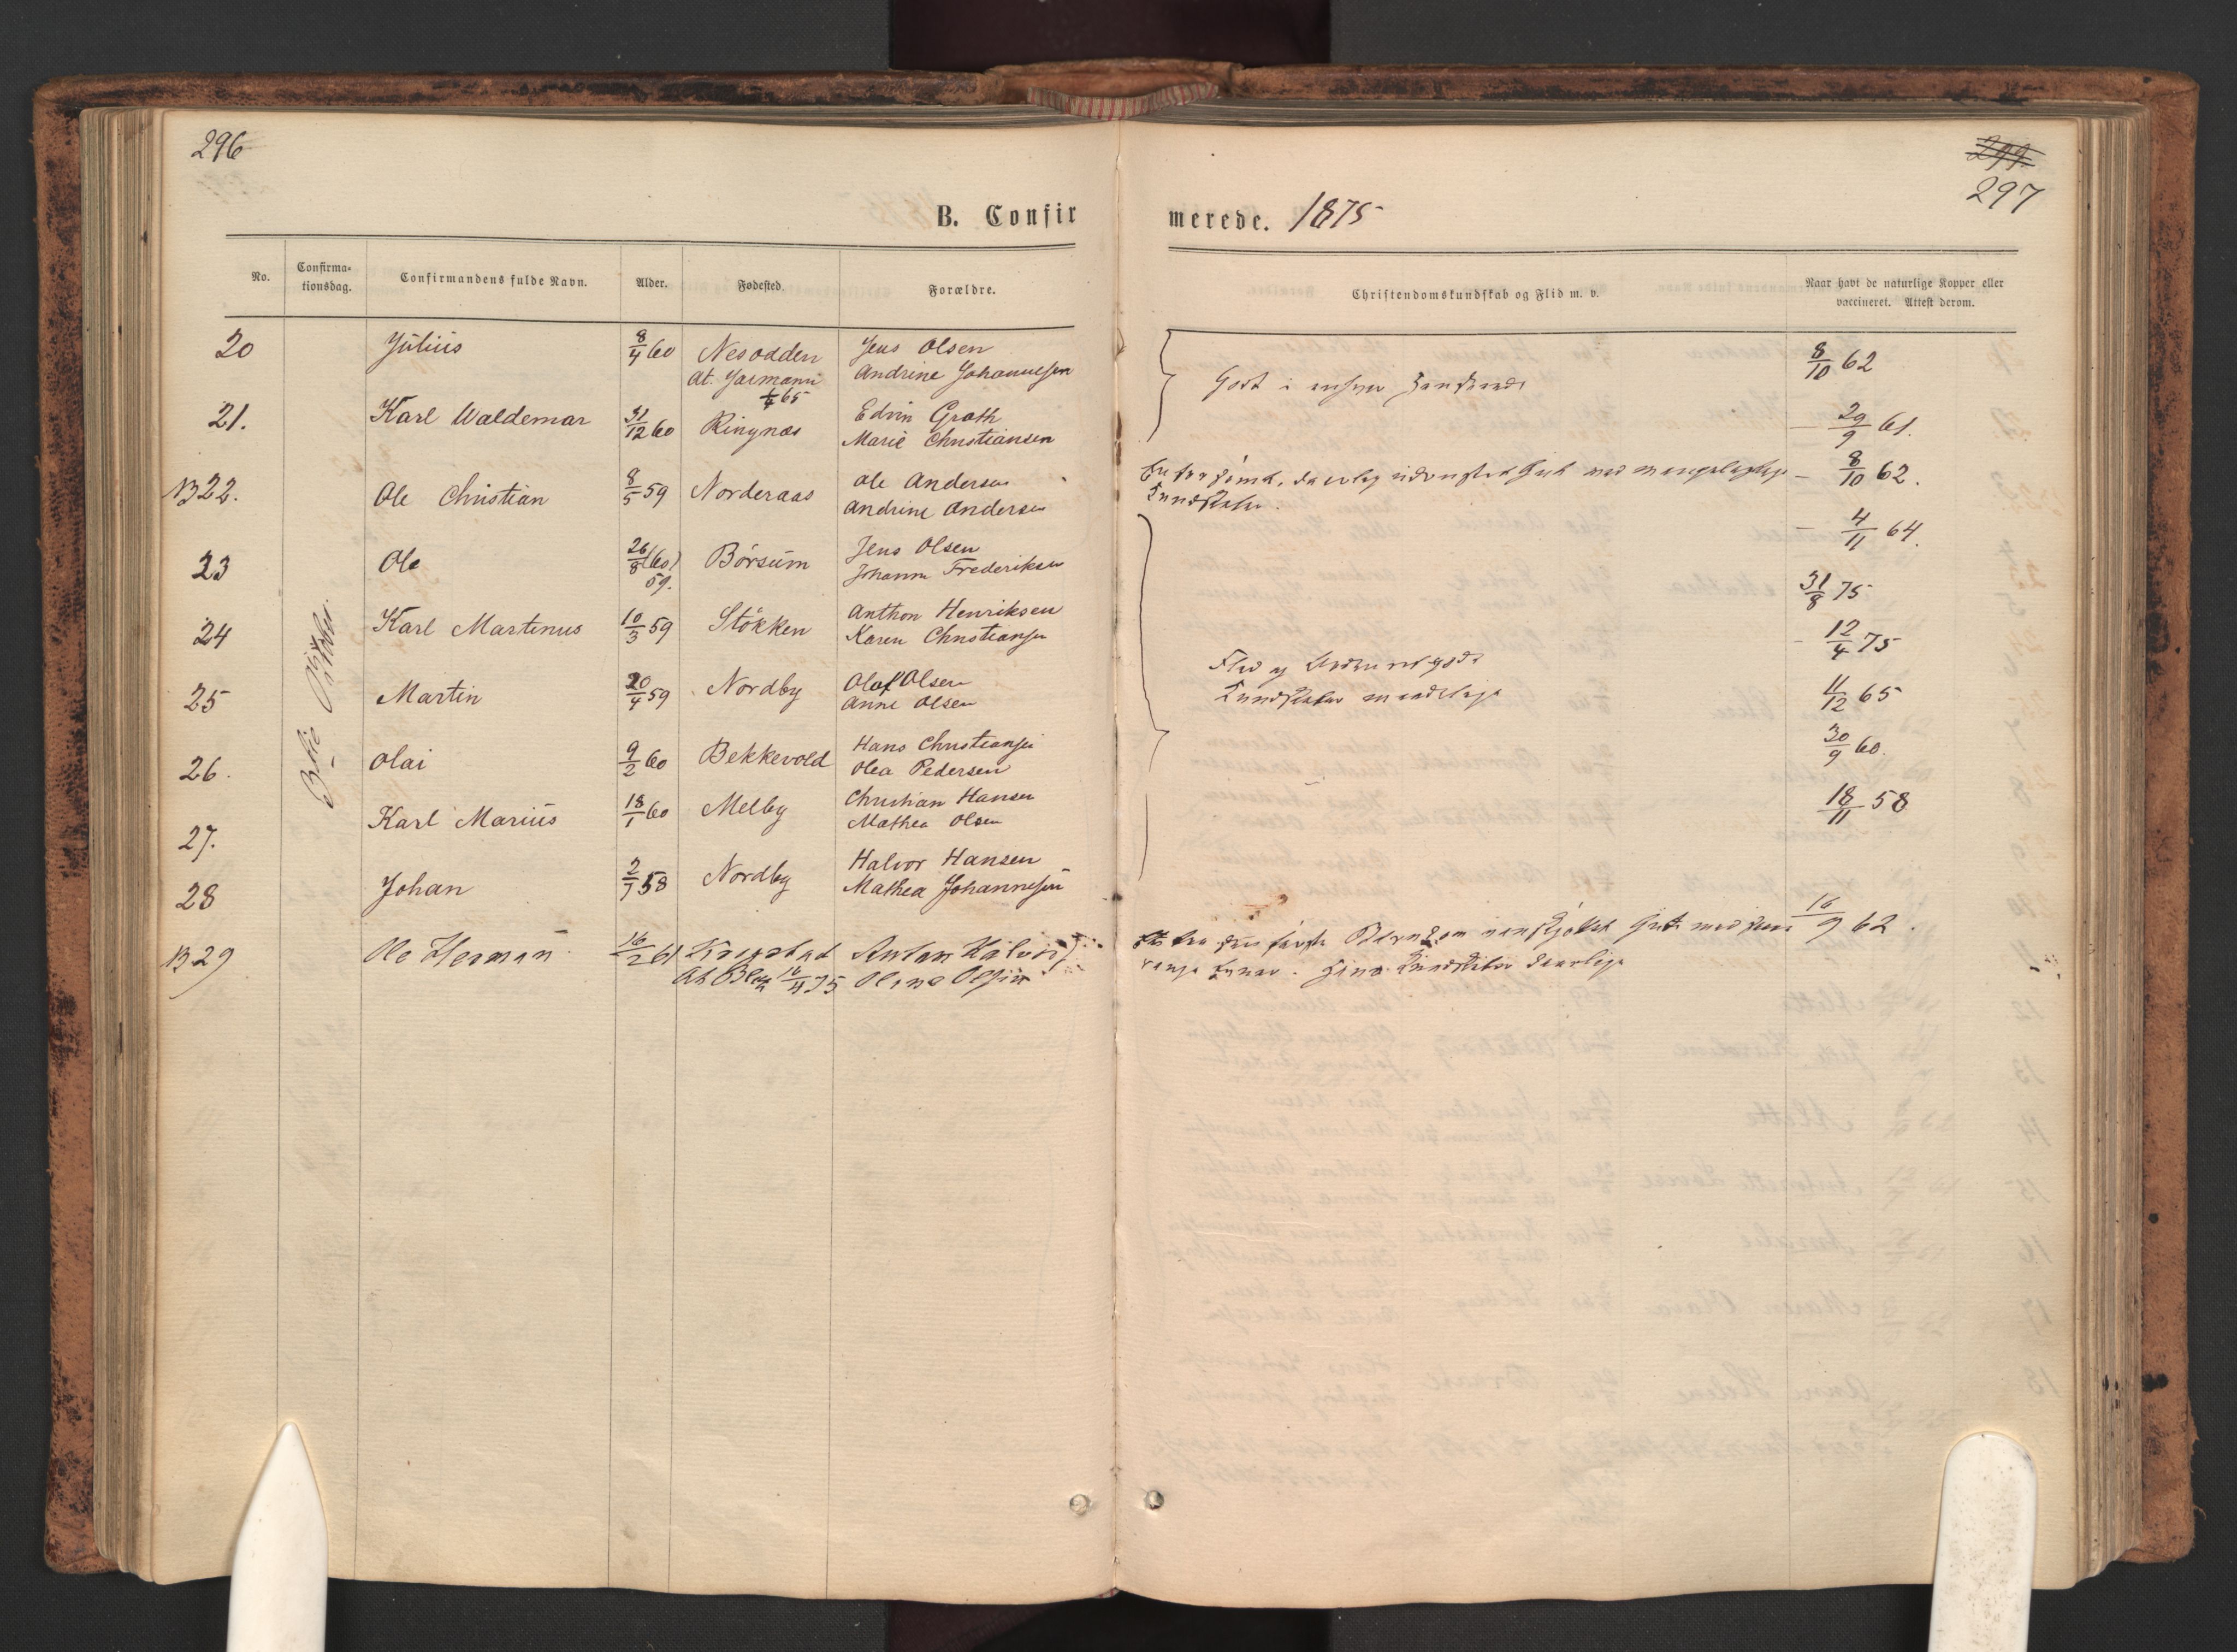 296
299
297
B. Confirmerede. 1875
No.
Confirmationsdag.
Confirmandens fulde Navn.
Alder.
Fødested.
Forældre.
Christendomskundskab og Flid m. v.
Naar havt de naturlige Kopper eller vaccineret. Attest derom.
3die Oktober
20 Julius 8/4 60 Nesodden Jens Olsen 8/10 62
At. 65 Andrine Johannesen
Godt i enhver Henseende
21. Karl Waldemar 31/12 60 Ringnæs Edvin Groth 29/9 61.
Marie Christiansen
B 22. Ole Christian 8/5 59 Norderaas Ole Andersen 8/10 62.
Andrine Andersen
Gut med mangelagtige
Kundskaber.
4/11 64.
23 Ole 26/8 (60) Børsum Jens Olsen 31/8 75
59. Johanne Frederiksen
24 Karl Martinus 10/3 59 Støkken Anthon Henriksen 12/4 75
Karen Christiansen
Flid og
Kundskaber maadelige
25 Martin 20/4 59 Nordby Olaf Olsen 11/12 65
Anne Olsen
26. Olai 9/2 60 Bekkevold Hans Christiansen 30/9 60.
Olea Pedersen
27. Karl Marius 18/1 60 Melby Christian Hansen 18/11 58
Mathea Olsen
28 Johan 2/7 58 Nordby Halvor Hansen
Mathea Johannesen
B 29 Ole Herman 16/2 61 Kragstad Anton 16/9 62.
At 16/4 75 Olsen
Hans Kundskaber daarlige